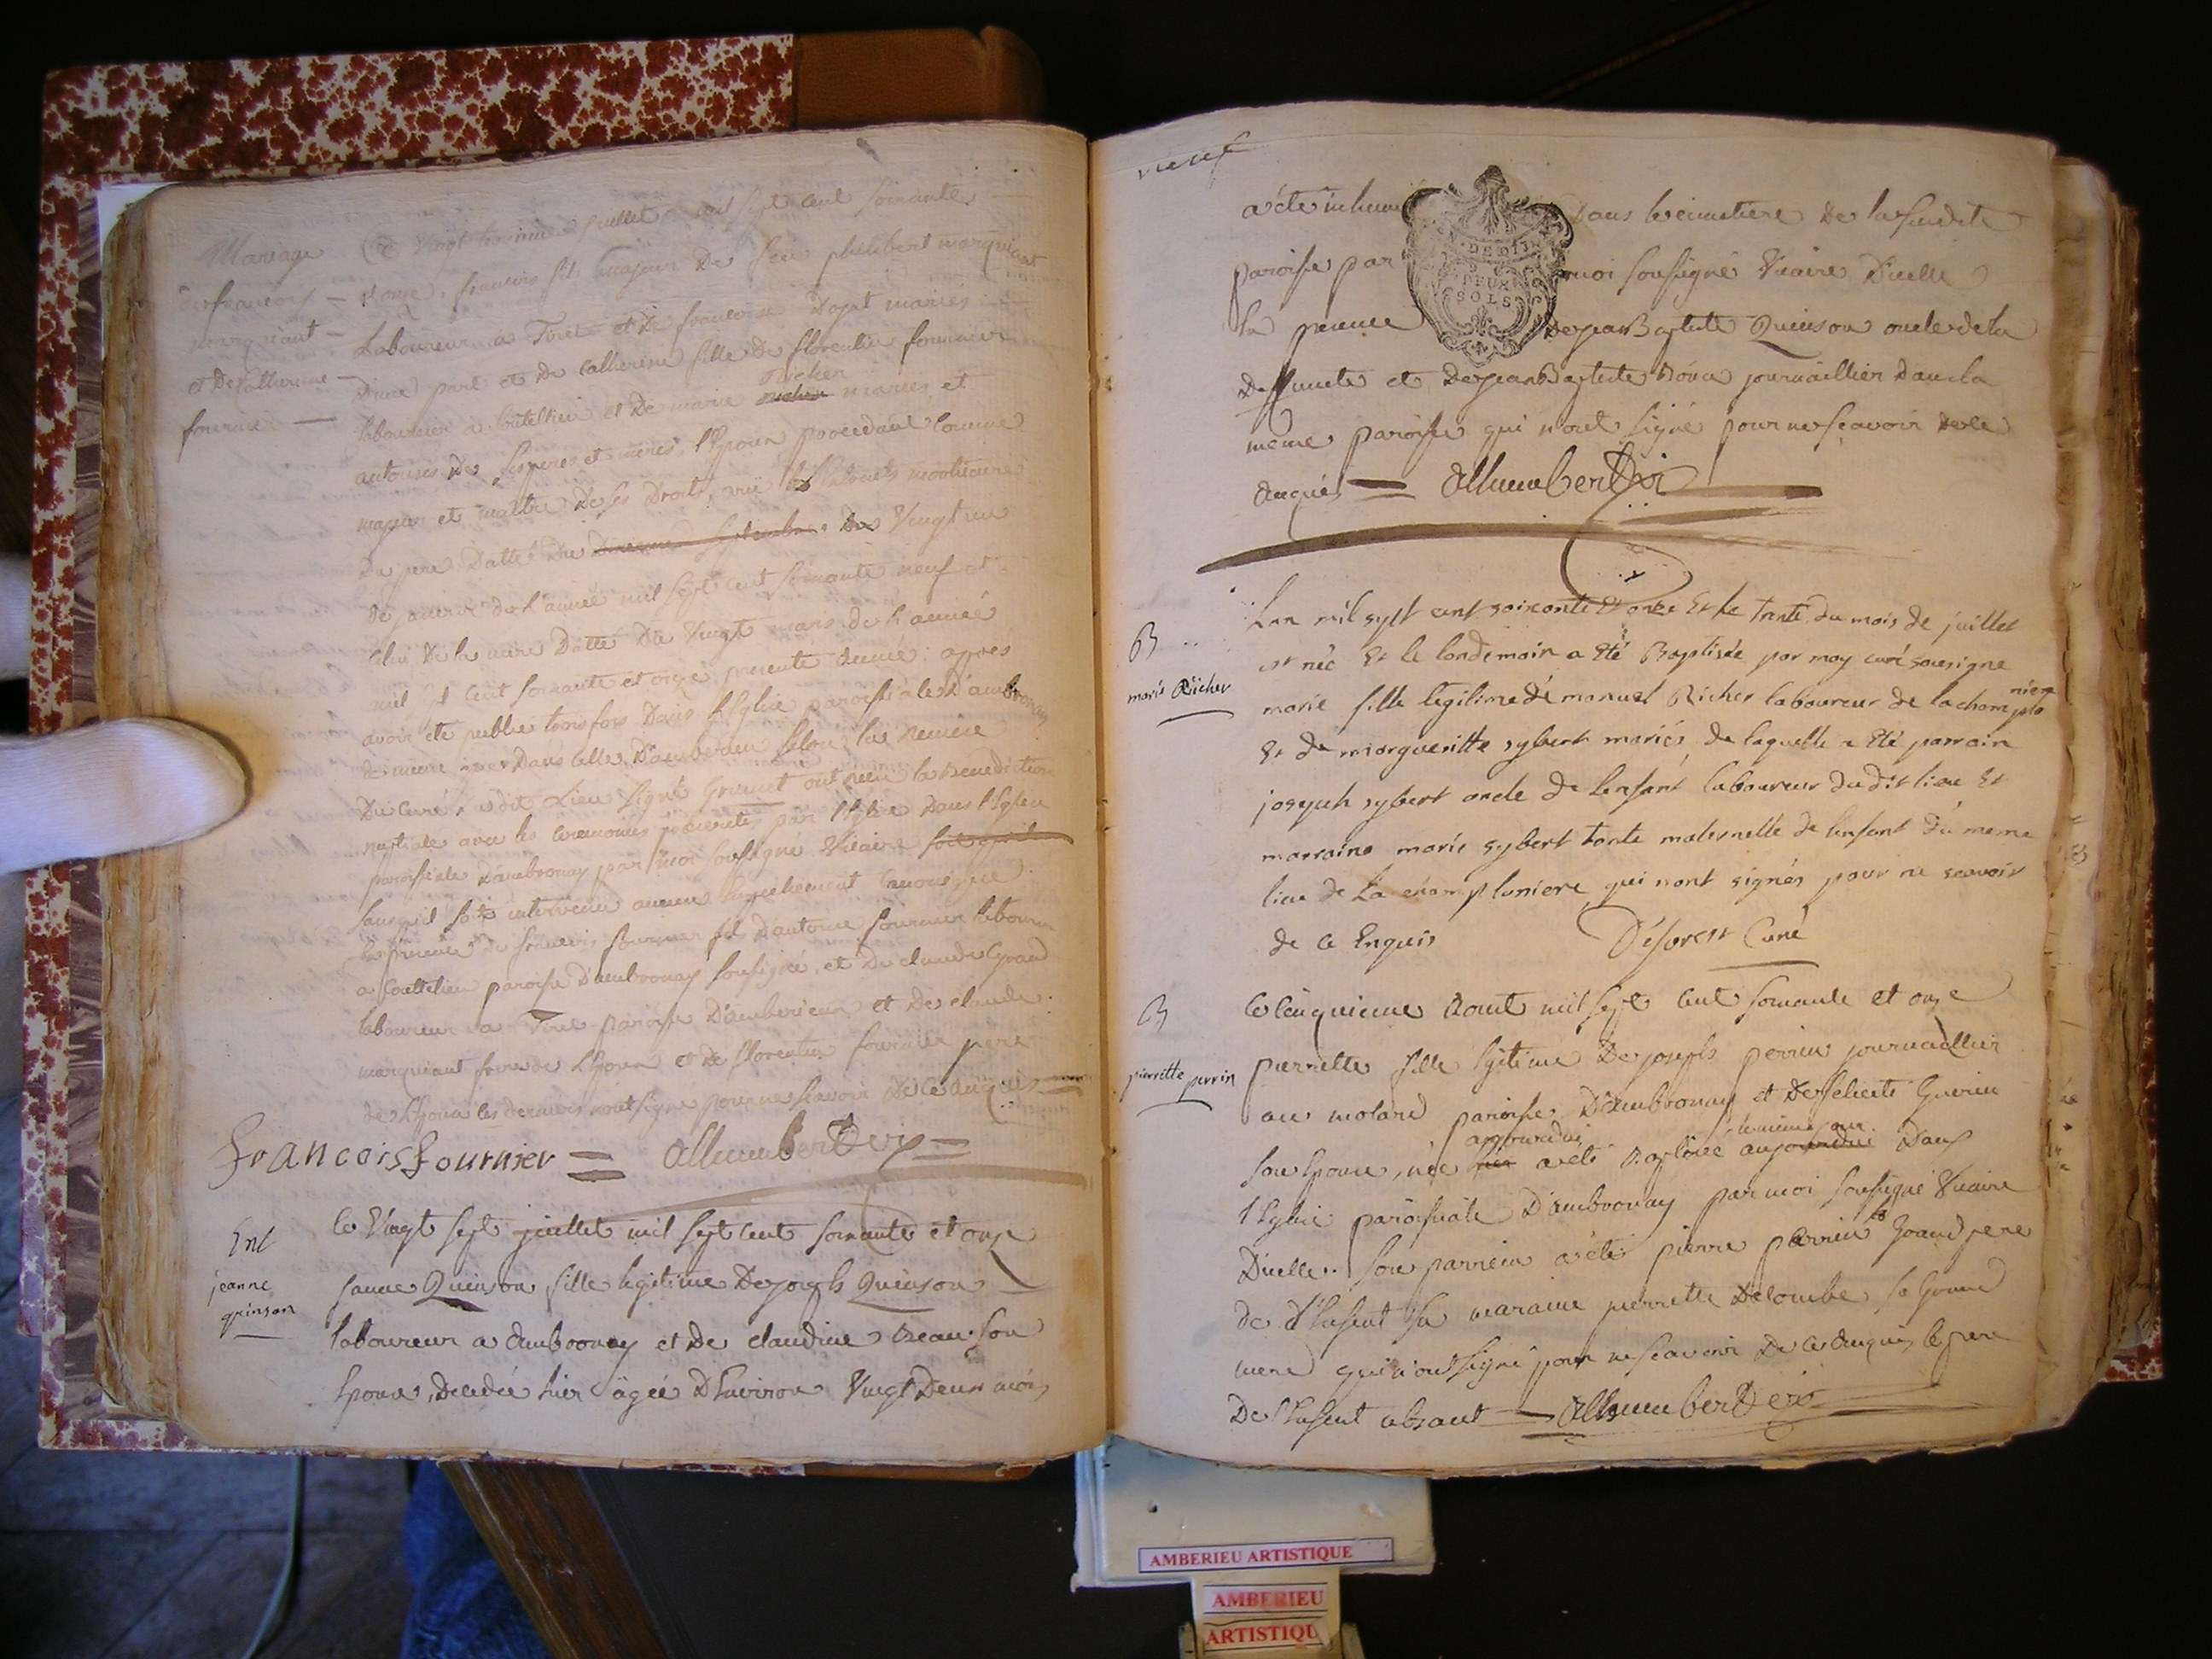 Mariage
de francois
marquiant
et De Catherine
fournier
Ce vingt troisieme juillet mil sept cent soixante
et onze, francois fils majeur De feu philibert marquiant
Laboureur a Tiret et De francoise Dogat mariés
D'une part et De Catherine fille De florentin fournier
laboureur a Couttelieu et De marie Richer mariés et
autorisés De ses peres et meres, l'Epoux procedant comme
majeur et maitre De ses Droits, vu les extraits mortuaires
Du pere Datté Du Vingt un
De janvier De l'année mil sept cent soixante neuf et
celui De la mere Datté Du Vingt mars De l'année
mil sept cent soixante et onze presente année: apres
avoir été publié trois fois Dans l'Eglise paroissiale D'ambronay
De meme que Dans celle D'amberieu selon la remise
Du curé dudit Lieu signé Grumet ont recu la Benediction
nuptiale avec les ceremonies prescrites par l'Eglise Dans l'Eglise
paroissiale D'ambronay par moi soussigné Vicaire
sans qu'il soit intervenu aucun empechement canonique
la presence De francois fournier fils D'antoine fournier laboureur
a Couttelieu paroisse D'ambronay soussigné, et De claude Grand
laboureur a Tiret paroisse D'amberieu et De claude
marquiant frere De l'Epoux et De florentin fournier pere
de l'Epouse les derniers n'ont signé pour ne scavoir De ce enquis
francois fournier = Allumbert Vic
Ent
jeanne
quinson
Le Vingt sept juillet mil sept cent soixante et onze
janne Quinson fille legitime De joseph Quinson
laboureur a Ambronay et De claudine son
Epouse, Decedée hier agée D'Environ Vingt Deux mois
neuf
a été inhumée Dans le cimetiere De la susdite
paroisse par moi soussigné Vicaire D'icelle
la presence De jean Baptiste Quinson oncle de la
Deffuncte et De jean Baptiste journaillier Dans la
meme paroisse qui n'ont signé pour ne scavoir De ce
Enquis = Allumbert Vic
DEUX
SOLS
B
marie Richer
L'an mil sept cent soixante et onze Et le trente du mois de juillet
est née Et le londemain a Eté Baptisée par moy curé sousigné
marie fille legitime d'émanuel Richer laboureur de la champlo
niere
Et de margueritte sybert mariés de laquelle a Eté parrain
joseph sybert oncle de l'enfant laboureur dudit lieu Et
marraine marie sybert tante maternelle de l'enfant du meme
lieu de La champloniere qui n'ont signés pour ne scavoir
de ce Enquis Déforest Curé
B
pierrette perrin
Le Cinquieme Aout mil sept cent soixante et onze
pierrette fille legitime De joseph perrin journaillier
au molard paroisse D'ambronay et De felicite Guerin
son Epouse, née aujourdui a été Baptisée le meme jour Dans
l'Eglise paroissiale D'ambronay par moi soussigné Vicaire
D'icelle. son parrein a été pierre perrin Grand pere
de l'Enfant sa maraine pierrette Delombe sa Grand
mere qui n'ont signé pour ne scavoir De ce Enquis le pere
De l'Enfant absent = Allumbert Vic
AMBERIEU ARTISTIQUE
AMBERIEU
ARTISTIQU